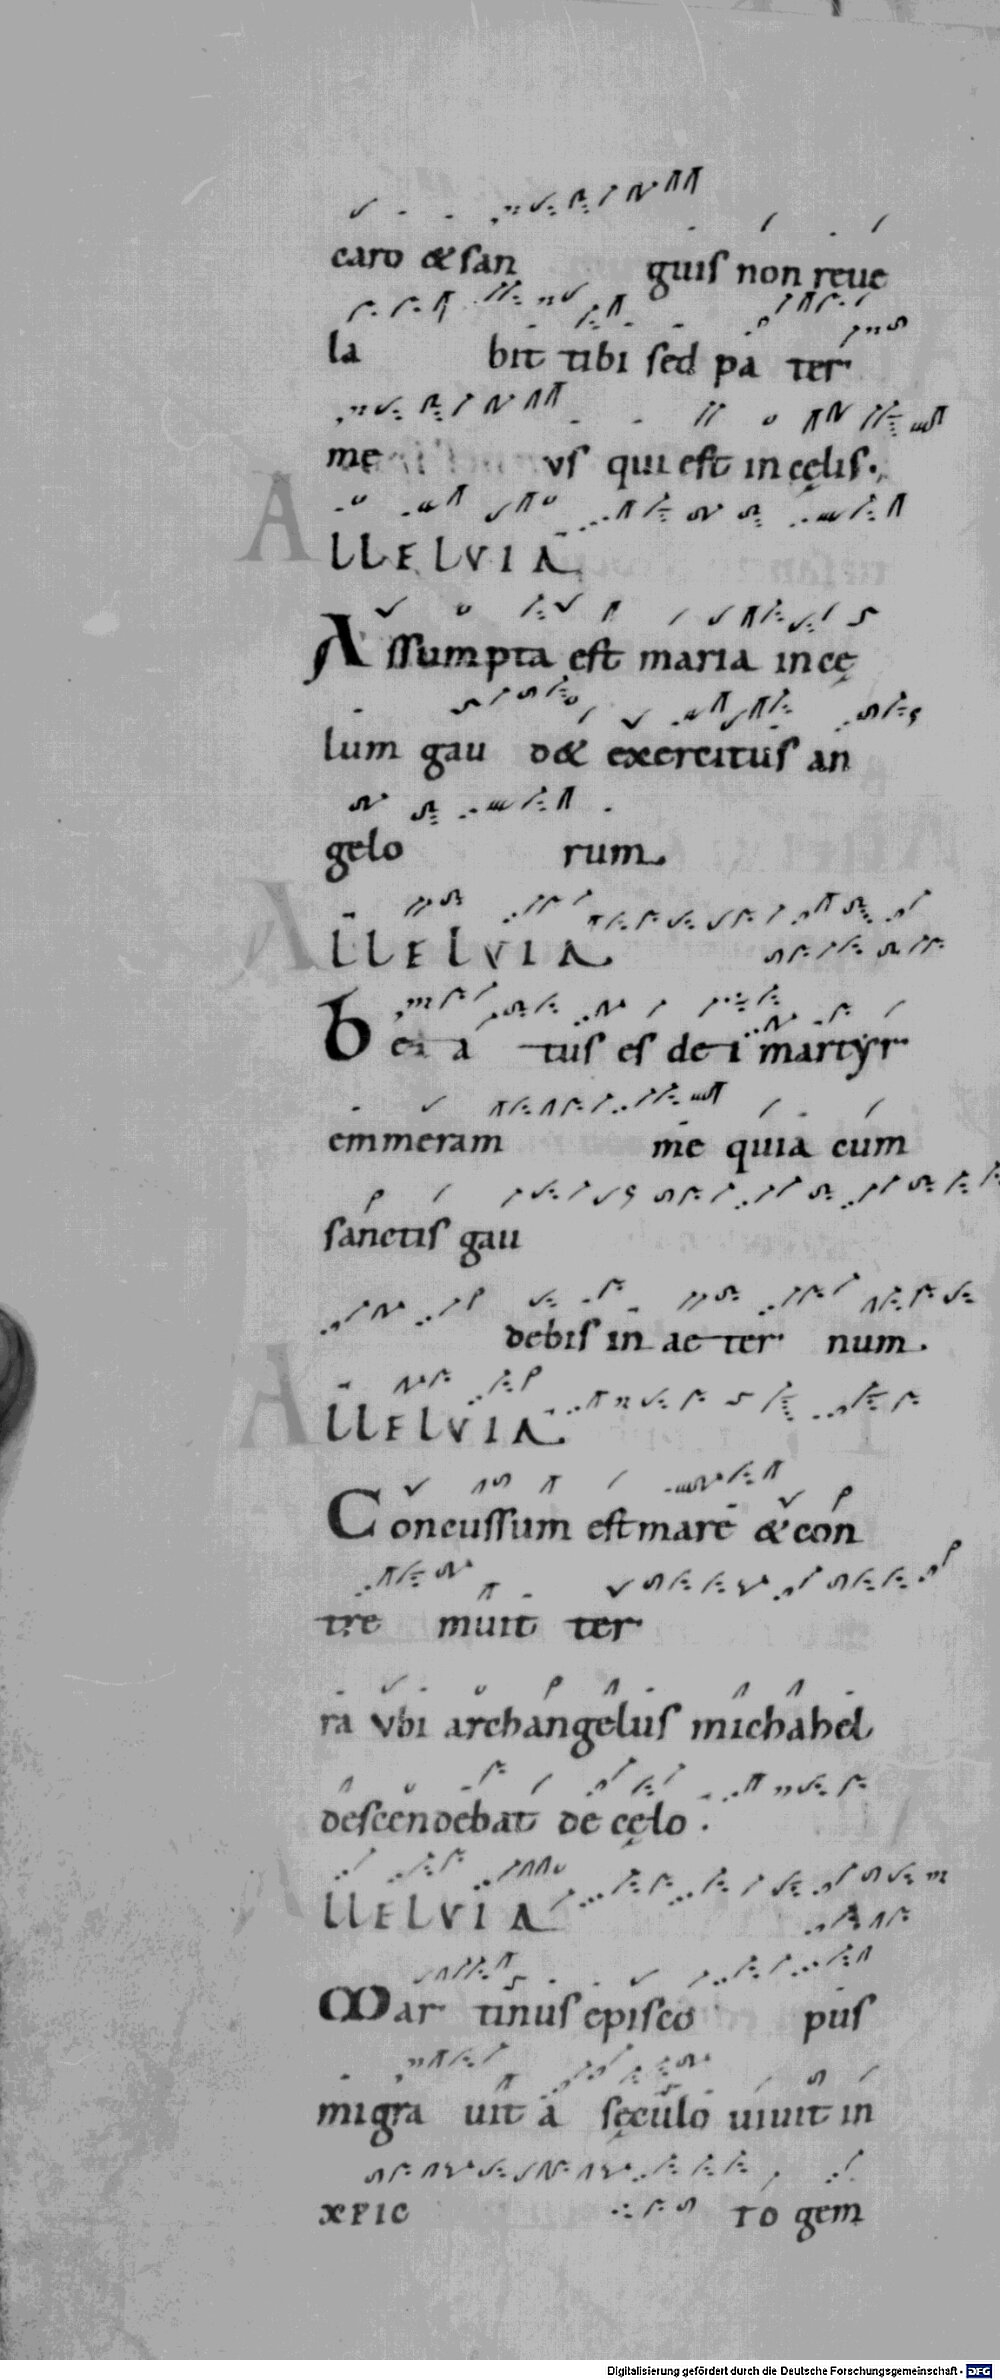 caro & san guis non reue
la bit tibi sed pa ter
me vs qui est in cęlis.
ALLELVIA
Assumpta est maria in cę
lum gau d& exercitus an
gelo rum.
ALLELVIA
be a tus es de i martyr
emmeram me quia cum
sanctis gau
debis in ae ter num.
ALLELVIA
Concussum est mare & con
tre muit ter
ra vbi archangelus michahel
descendebat de cęlo.
ALLELVIA
Mar tinus episco pus
migra uit a sęculo uiuit in
xpic to gem
Digitalisierung gefördert durch die Deutsche Forschungsgemeinschaft - DFG